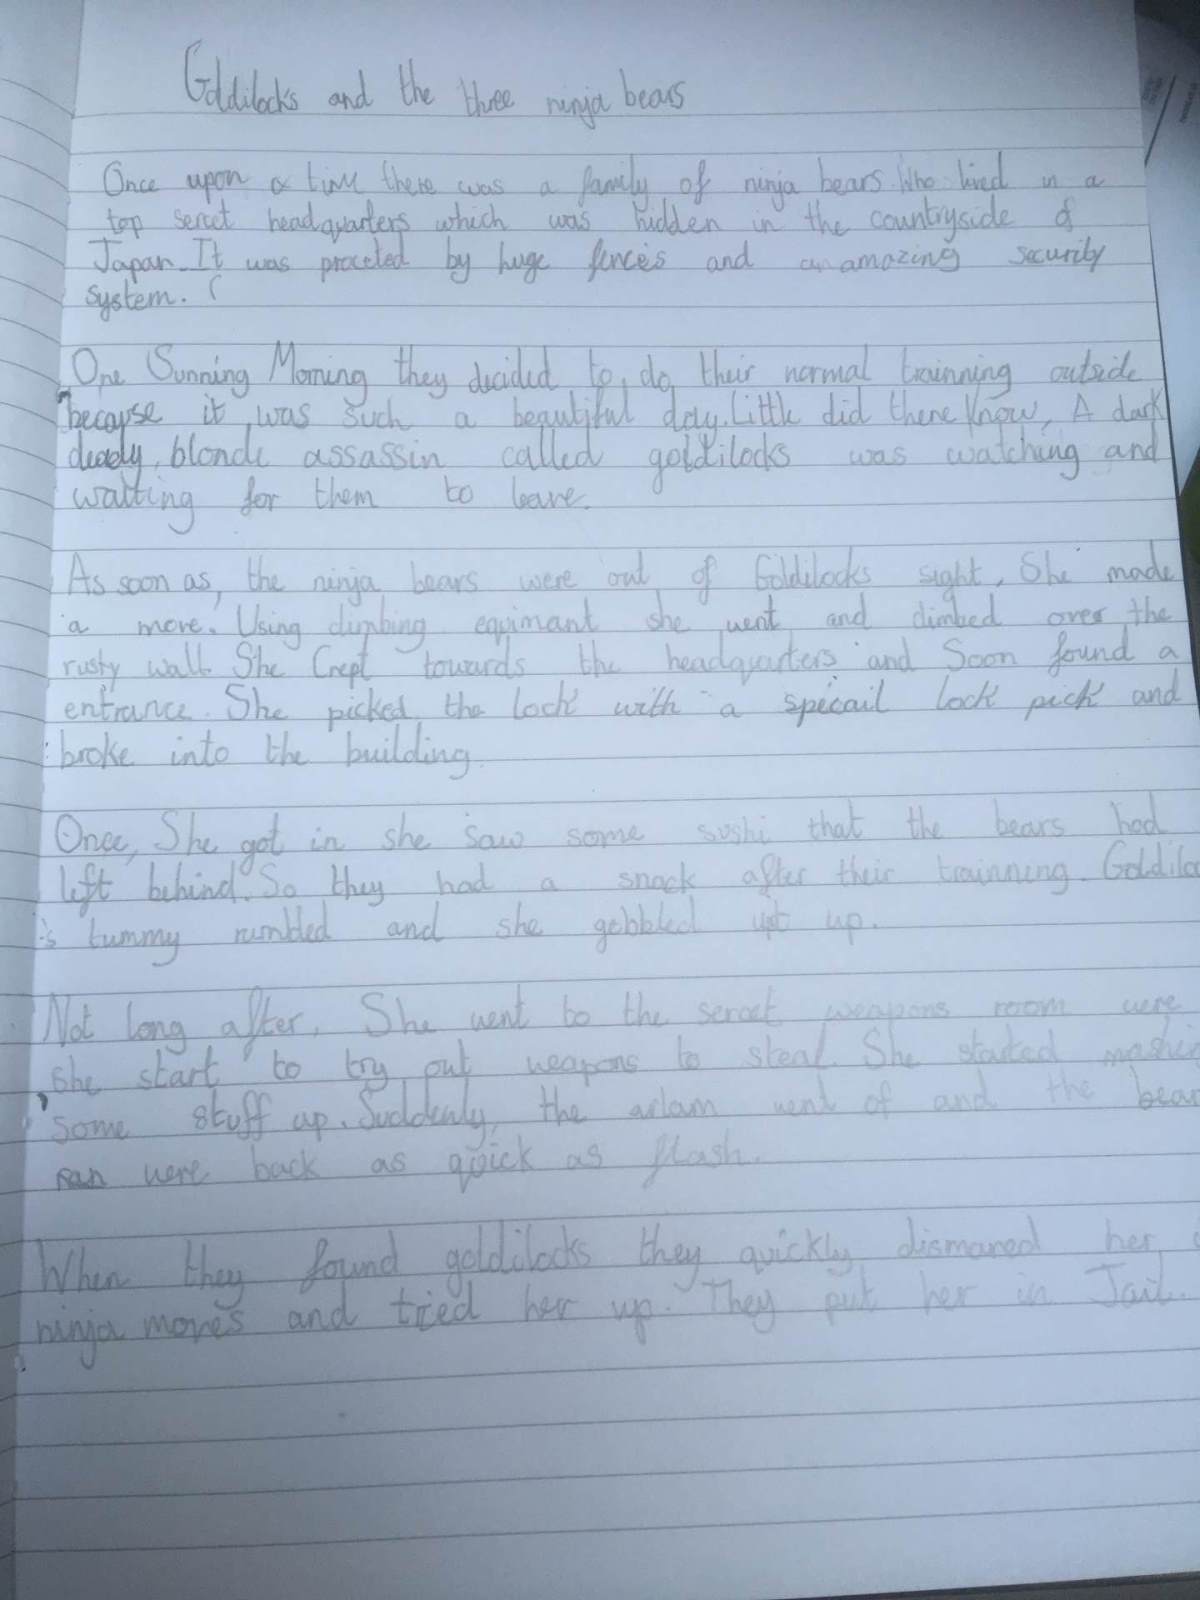 Goldilocks and the three ninja bears
Once upon a time there was a family of ninja bears. Who lived in a
top sercet headquarters which was hidden in the countryside of
Japan. It was proceted by huge fences and an amazing security
system. (
One Sunning Morning they decided to do their normal trainning outside
because it was such a beautiful day. Little did there know, A dark
deadly, blonde assassin called goldilocks was watching and
waiting for them to leave.
As soon as, the ninja bears were out of Goldilocks sight, She made
a move. Using climbing equimant she went and climbed over the
rusty wall. She Crept towards the headquarters and Soon found a
entrance. She picked the lock with a specail lock pick and
broke into the building.
Once, She got in she saw some sushi that the bears had
left behind. So they had a snack after their trainning. Goldilo
's tummy rumbled and she gobbled up.
Not long after, She went to the sercet weapons room were
she start to try out weapons to steal. She started
some stuff up. Suddenly, the arlam went of and the bear
ran were back as quick as flash.
When they found goldilocks they quickly dismared her,
ninja moves and tried her up. They put her in Jail.